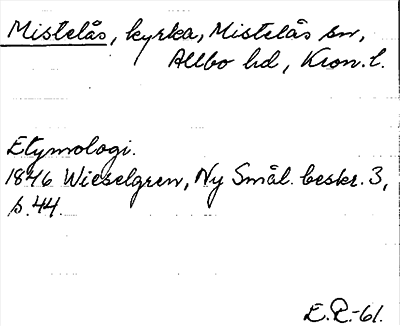 Mistelås, kyrka, Mistelås sn,
Allbo hd, Kron. l.
Etymologi.
1846 Wieselgren, Ny Smål. beskr. 3,
s. 44.
E.R.-61.